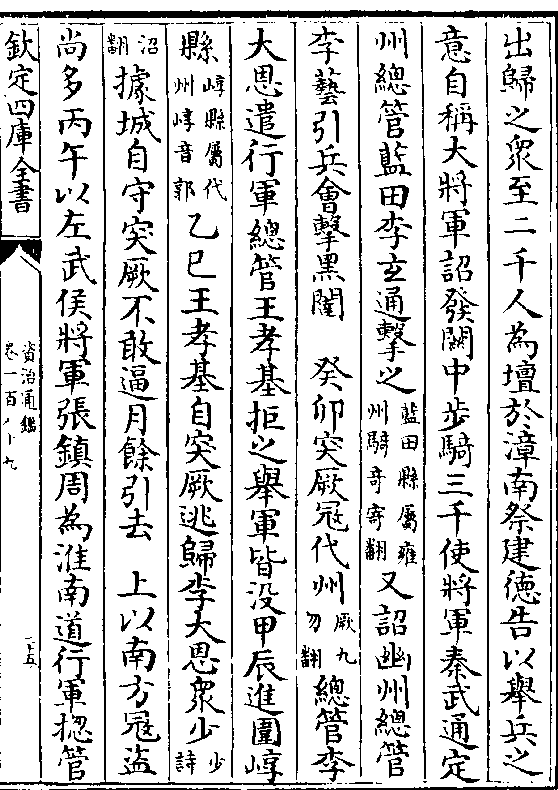 出歸之衆至二千人為壇於漳南祭建德告以舉兵之
意自稱大將軍詔發關中步騎三千使將軍秦武通定
州總管藍田李玄通擊之藍田縣屬雍州騎奇寄翻又詔幽州總管
李藝引兵會擊黑闥　癸卯突厥冦代州厥九勿翻總管李
大恩遣行軍總管王孝基拒之舉軍皆没甲辰進圍崞
縣崞縣屬代州崞音郭乙巳王孝基自突厥逃歸李大恩衆少少詩
沼翻據城自守突厥不敢逼月餘引去　上以南方冦盜
尚多丙午以左武侯將軍張鎮周為淮南道行軍揔管
欽定四庫全書
資治通鑑
卷一百八十九
二十五